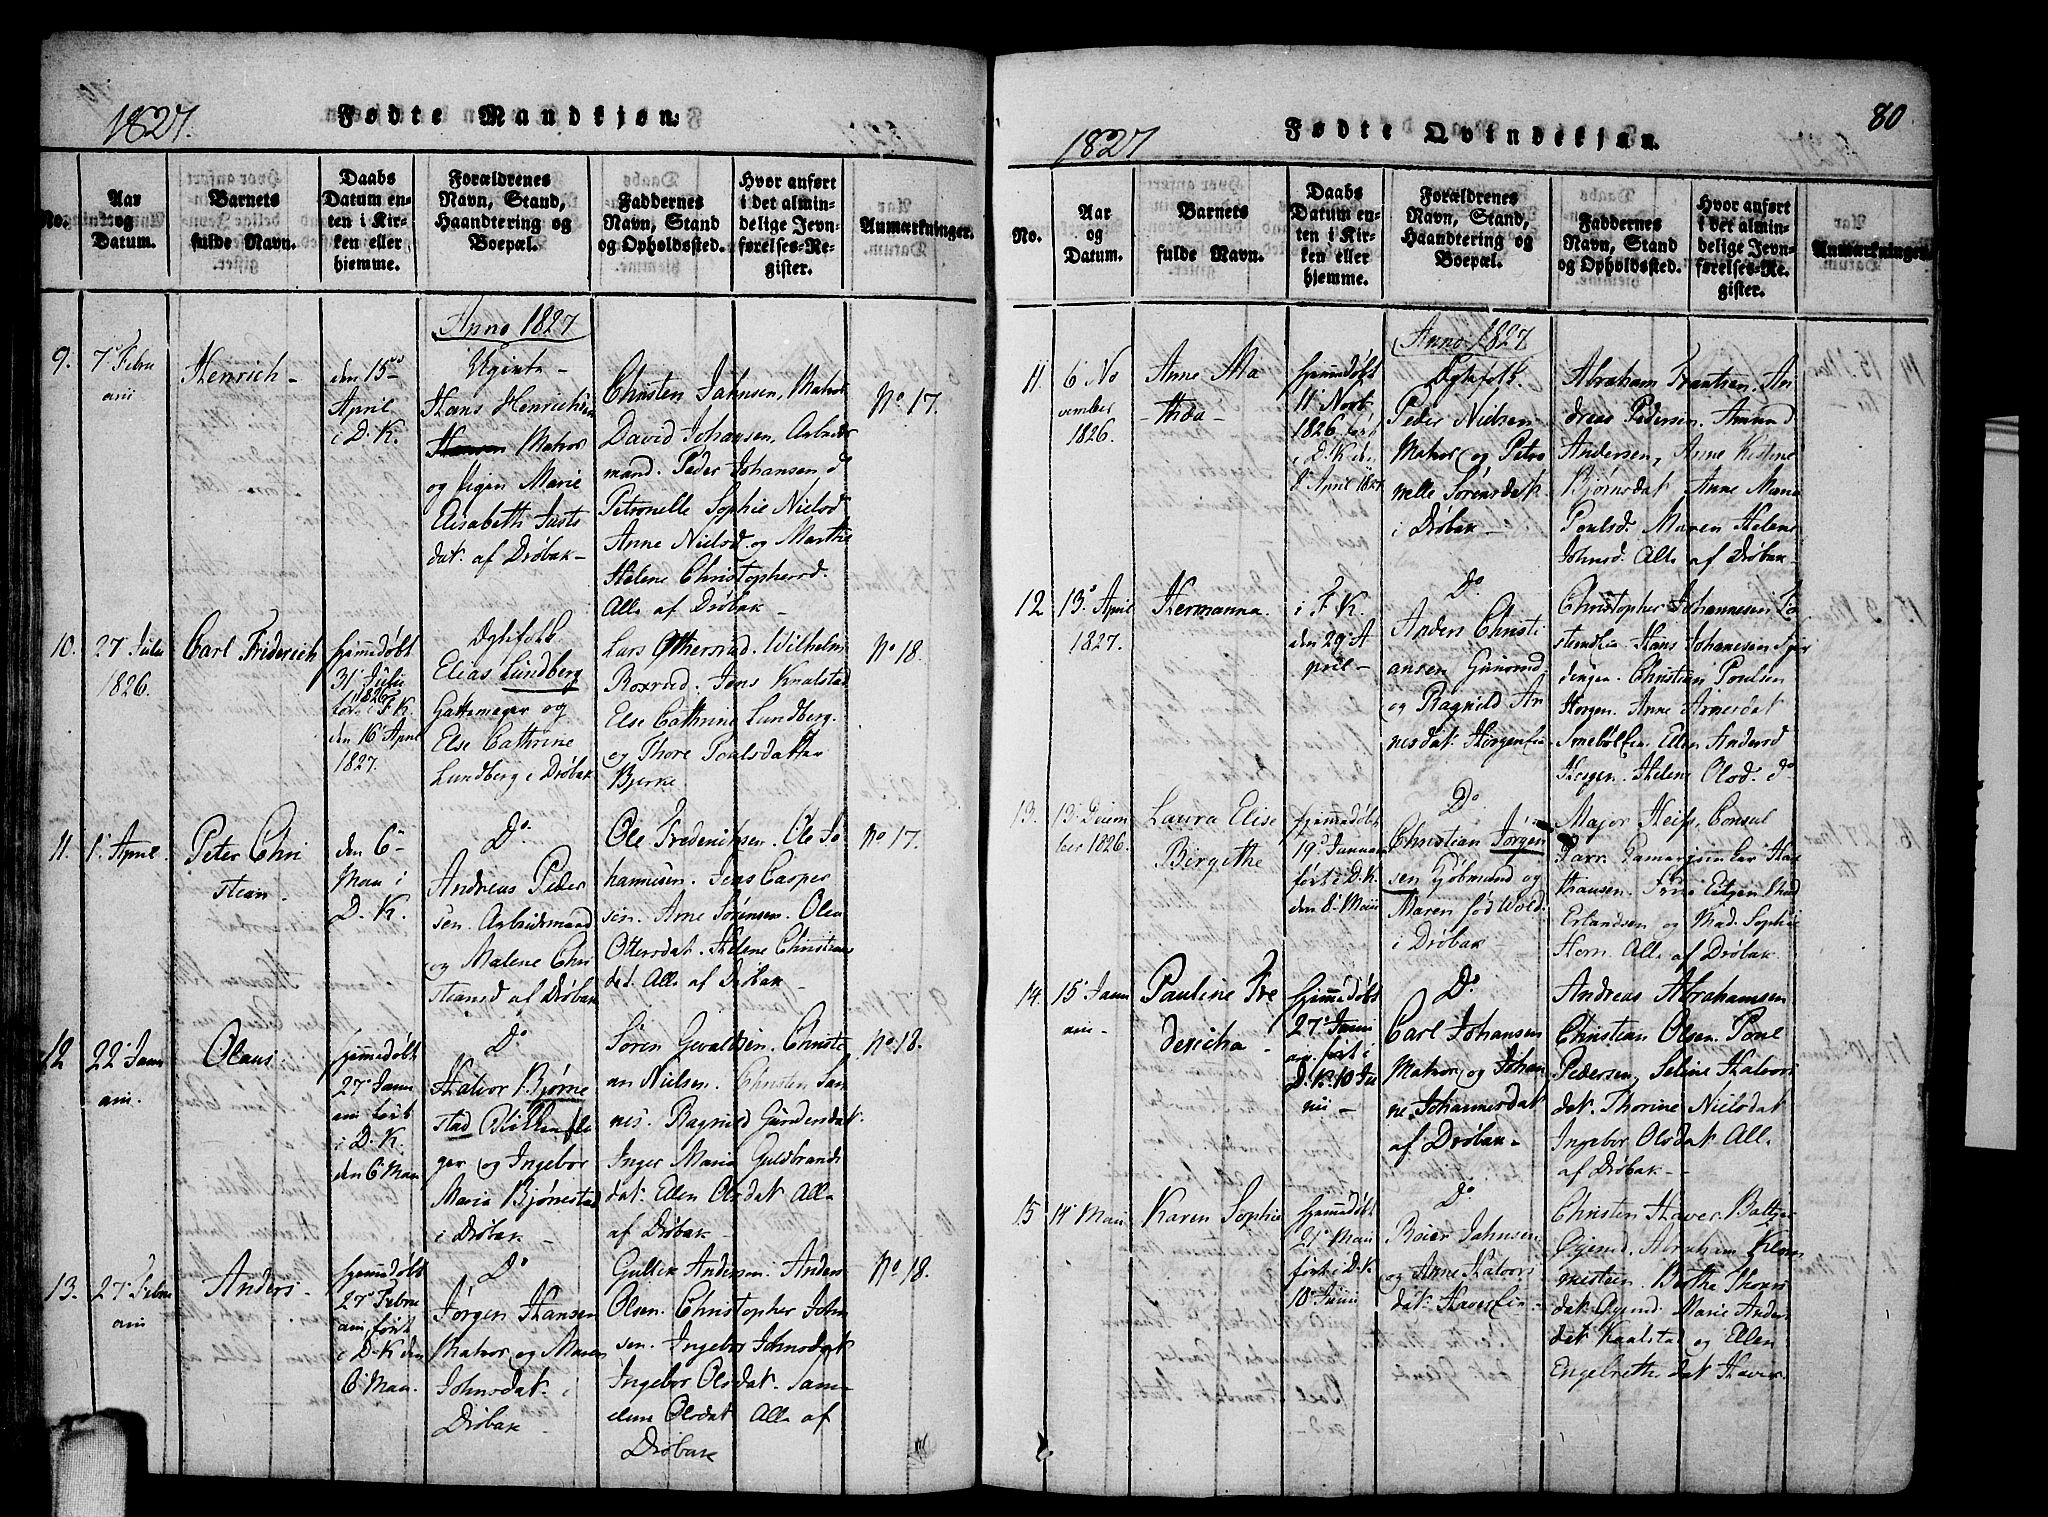 1827.
Fødte Mandkjøn.
No.
Aar
og
Datum.
Barnets
fulde Navn.
Daabs
Datum en-
ten i Kir-
ken eller
hjemme.
Forældrenes
Navn, Stand,
Haandtering og
Boepæl.
Faddernes
Navn, Stand
og Opholdssted.
Hvor anført
i det almin-
delige Jevn-
førelses-Re-
gister.
Anmærkninger.
Anno 1827
9.
7de Febru
arii
Henrich -
den 15de
April
i D. K.
Uginta -
Hans Henrichsen
Matros
og Pigen Marie
Elisabeth Justs
dat. af Drøbak -
Christen Jahnsen, Matros
David Johansen, Arbeids
mand. Peder Johansen do
Petronelle Sophie Nielsd
Anne Nielsd. og Marthe
Helene Christophersd.
Alle af Drøbak -
No. 17.
10.
27 Julii
1826.
Carl Friderich
Hjemmedøbt
31 Julii
1826
ført i F. K.
den 16 April
1827.
Ægtefolk
Elias Lundberg
Gartemager og
Else Cathrine
Lundberg i Drøbak
Lars Ottersrud. Wilhelm
Roxrud. Jens Knalstad
Else Cathrine Lundberg.
og Thore Poulsdatter
Bjerke
No 18.
11.
1. April.
Peter Chri
stian.
den 6te
Maii i
D. K.
Do.
Andreas Peder
sen. Arbeidsmand
og Malene Chri
stiansd af Drøbak
Ole Frederiksen. Ole Jo
hannesen. Jens Casper
sen. Arne Sørensen. Olea
Ottersdat. Helene Christians
dat. Alle af Drøbak -
No 17.
12
22 Janu
arii.
Olaus.
Hjemmedøbt
27 Janu
arii ført
i D. K.
den 6 Maii
Do
Halvor Bjørne
stad
ger og Ingebor
Maria Bjørnestad
i Drøbak -
Søren Gevaldsen. Christi
an Nielsen. Christen Jan
nes. Ragnild Gundersdat.
Inger Maria Guldbrands
dat. Ellen Olsdat Alle
af Drøbak -
No 18.
13.
27 Febru
arii
Anders -
Hjemmedøbt
27 Febru
arii ført
i D. K den
6 Maii.
Do
Jørgen Hansen
Matros og Maren
Johnsdat. i
Drøbak -
Gullik Andersen. Anders
Olsen. Christopher John
sen. Ingebor Johnsdat
Ingebor Olsdat.
Olsdat Alle af
Drøbak
No 18.
1827
Fødte Qvindekjøn.
80
No.
Aar
og
Datum.
Barnets
fulde Navn.
Daabs
Datum en-
ten i Kir-
ken eller
hjemme.
Forældrenes
Navn, Stand,
Haandtering og
Boepæl.
Faddernes
Navn, Stand
og Opholdssted.
Hvor anført
i det almin-
delige Jevn-
førelses-Re-
gister.
Anmærkninger.
Anno 1827
11.
6 No
vember
1826.
Anne Ma
thea -
Hjemmedøbt
11 Novb
1826 ført
i D. K den
8 April 1827
Ægtefolk.
Peder Nielsen
Matros og Petro
nelle Sørensdat
i Drøbak -
Abraham Frantsen. An
dreas Pedersen. Amund
Andersen, Anne Kistine
Bjørnsdat Anne Maria
Poulsd. Maren Helene
Johnsd. Alle af Drøbak -
12
13. April
1827.
Hermanna.
i F. K.
den 29 A
pril -
Do
Anders Christi
ansen Gunnerud
og Ragnild Ar
nesdat. Horgenfie
Christopher Johannesen
Hans Johannesen
Christian Poulsen
Horgen. Anne Arnesdat
Ellen Andersd
Horgen. Helene Olsd. do
13.
13 Decem
ber 1826.
Laura Elise
Birgithe
Hjemmedøbt
19 Januarii
ført i D. K.
den 8 Maii
Do
Christian Jørgen
sen Kjøbmand og
Maren fød Wold.
i Drøbak -
Major Heiss, Consul
Parr. Hak
thausen.
Erlandsen og Mad. Sophie
Horn. Alle af Drøbak
14.
15 Janu
arii -
Pauline Fre
dericha -
Hjemmedøbt
27 Janu
arii ført i
D. K. 10 Ju
nii -
Do
Carl Johansen
Matros og Johan
ne Johannesdat
af Drøbak -
Andreas Abrahamsen
Christian Olsen. Poul
Pedersen, Seline Halvors
dat. Thorine Nielsdat
Ingebor Olsdat. Alle
af Drøbak -
15
14 Maii
Karen Sophie
Hjemmedøbt
21 Maii
ført i D. K
10 Junii
Do
Reier Jahnsen
og Anne Halvors
dat. Haverfie
Christen Haver. Baltzer
Øgend. Abraham Klom
mesteen. Berthe Thors
dat. Øgend. Marie Anders
dat Kaalstad og Ellen
Engelreths dat Haver.